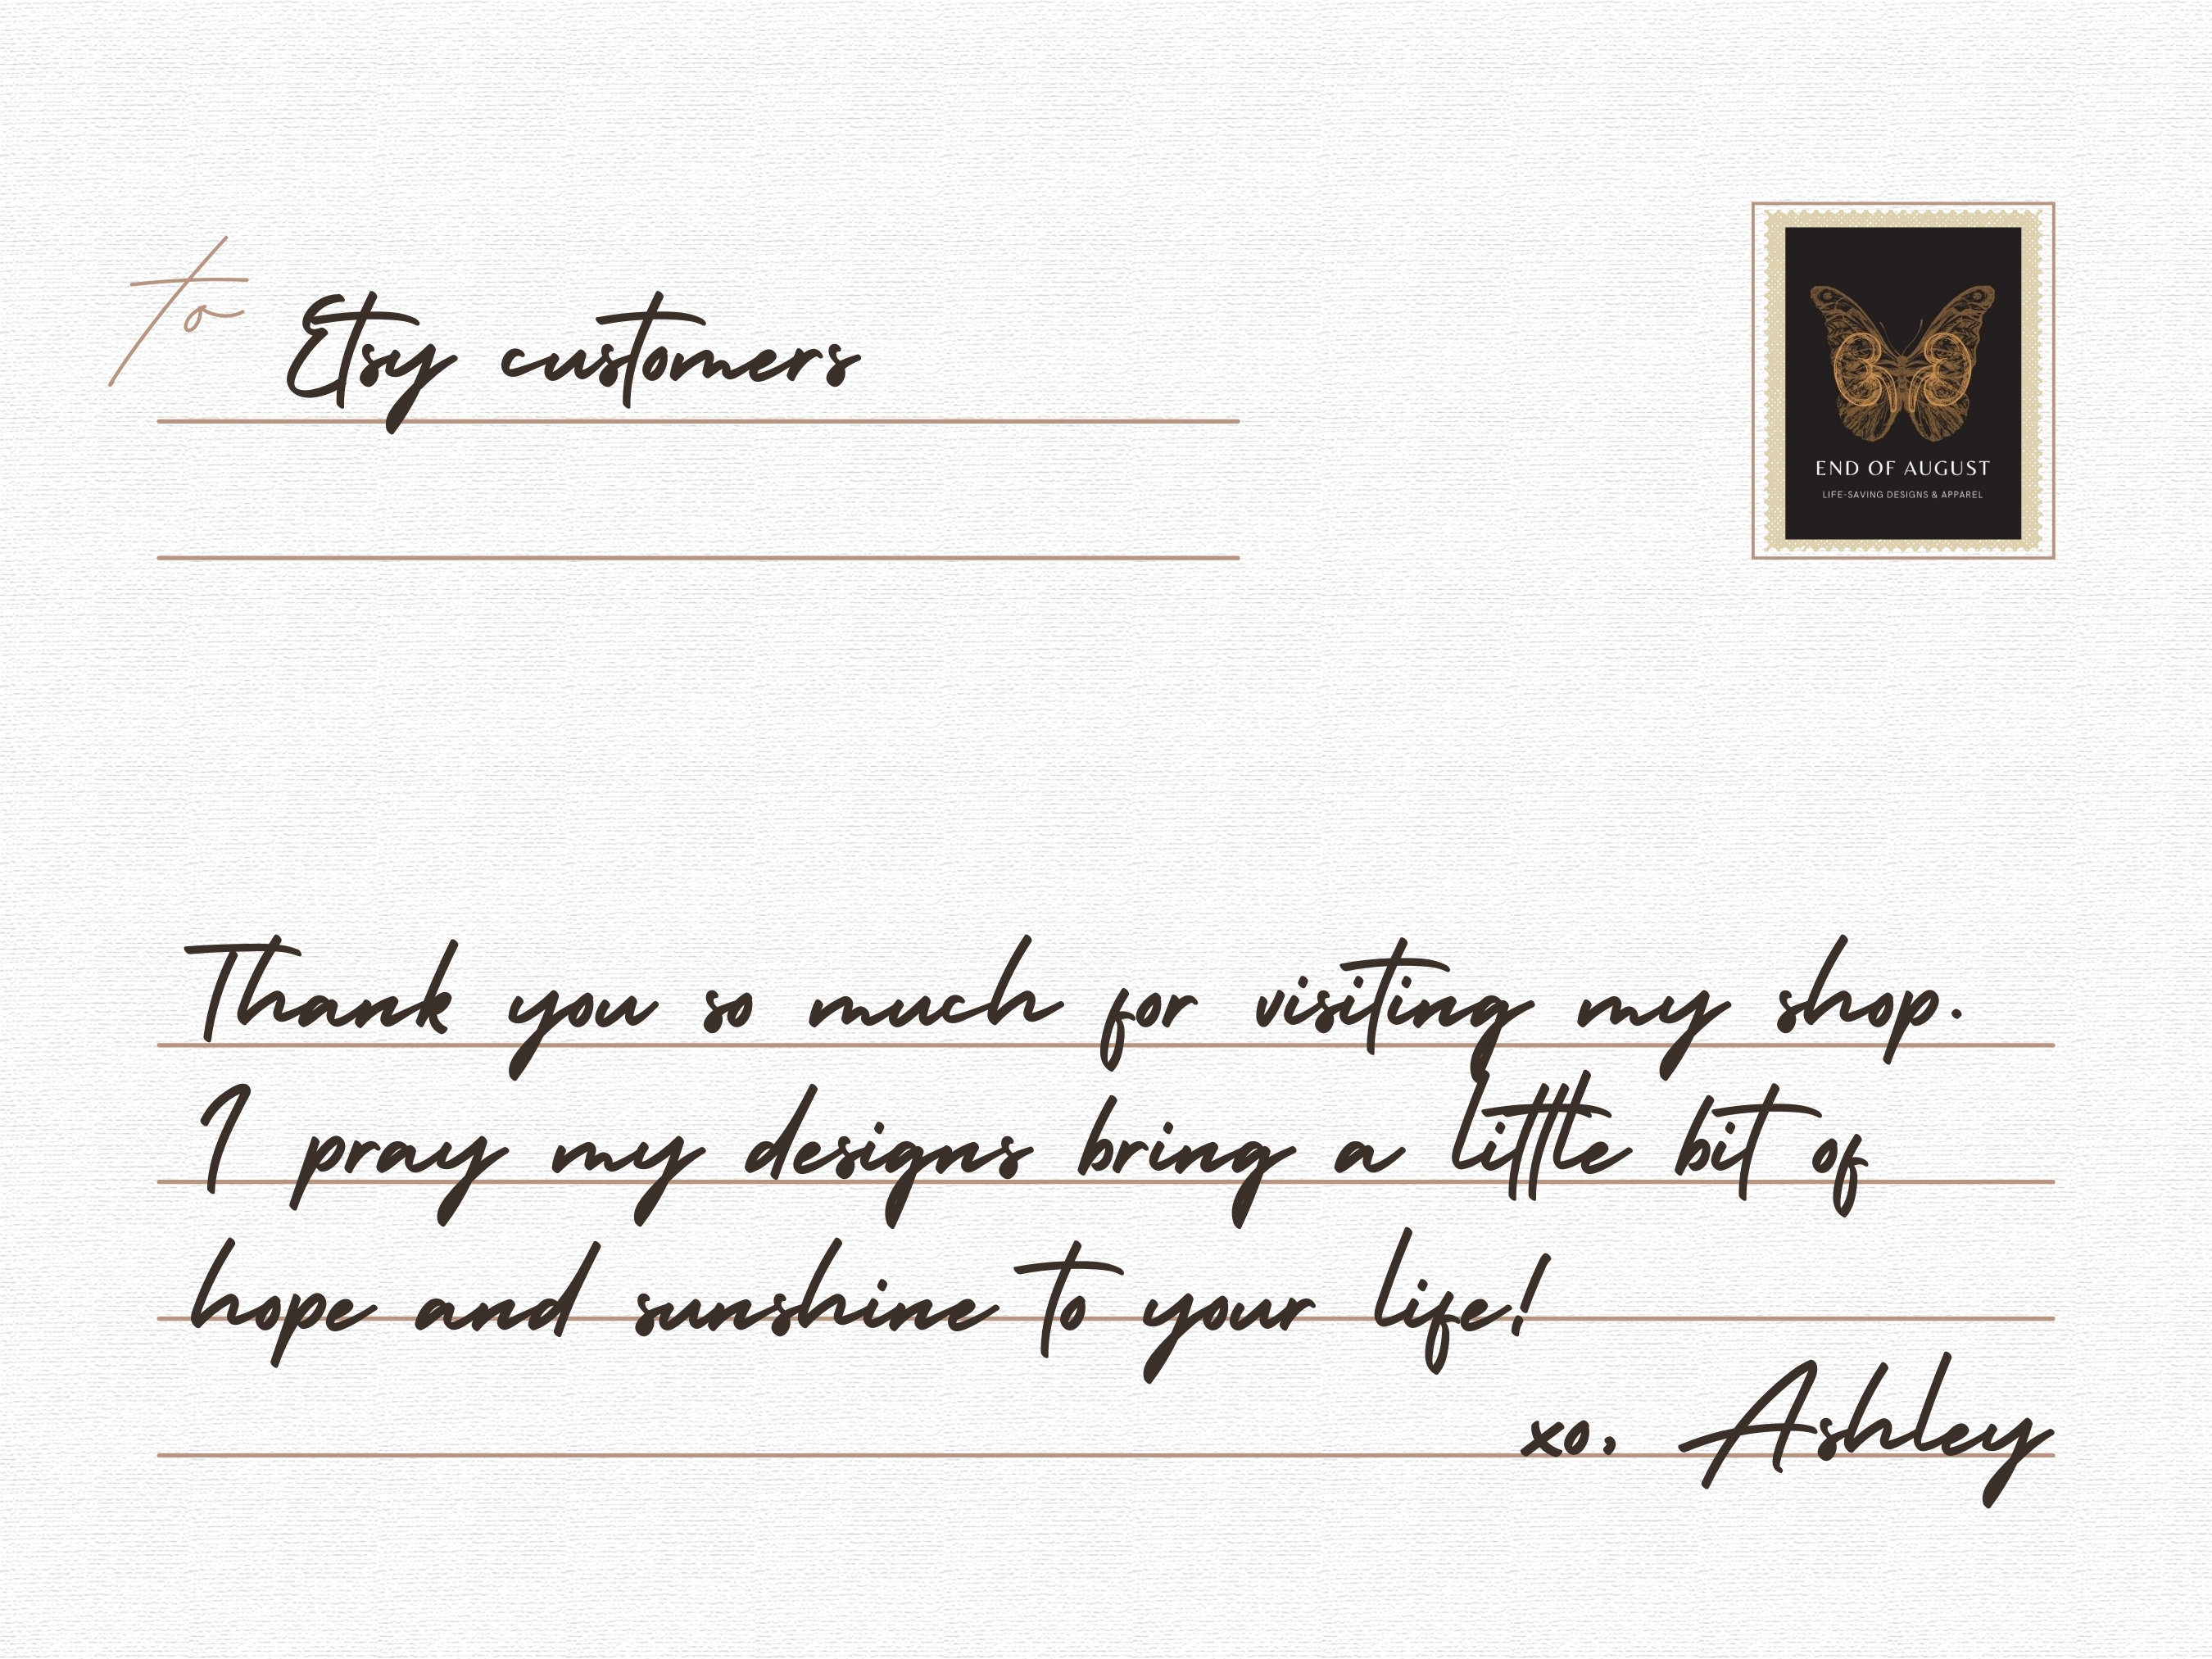 to Etsy customers
END OF AUGUST
LIFE-SAVING DESIGNS & APPAREL
Thank you so much for visiting my shop.
I pray my designs bring a little bit of
hope and sunshine to your life!
xo, Ashley